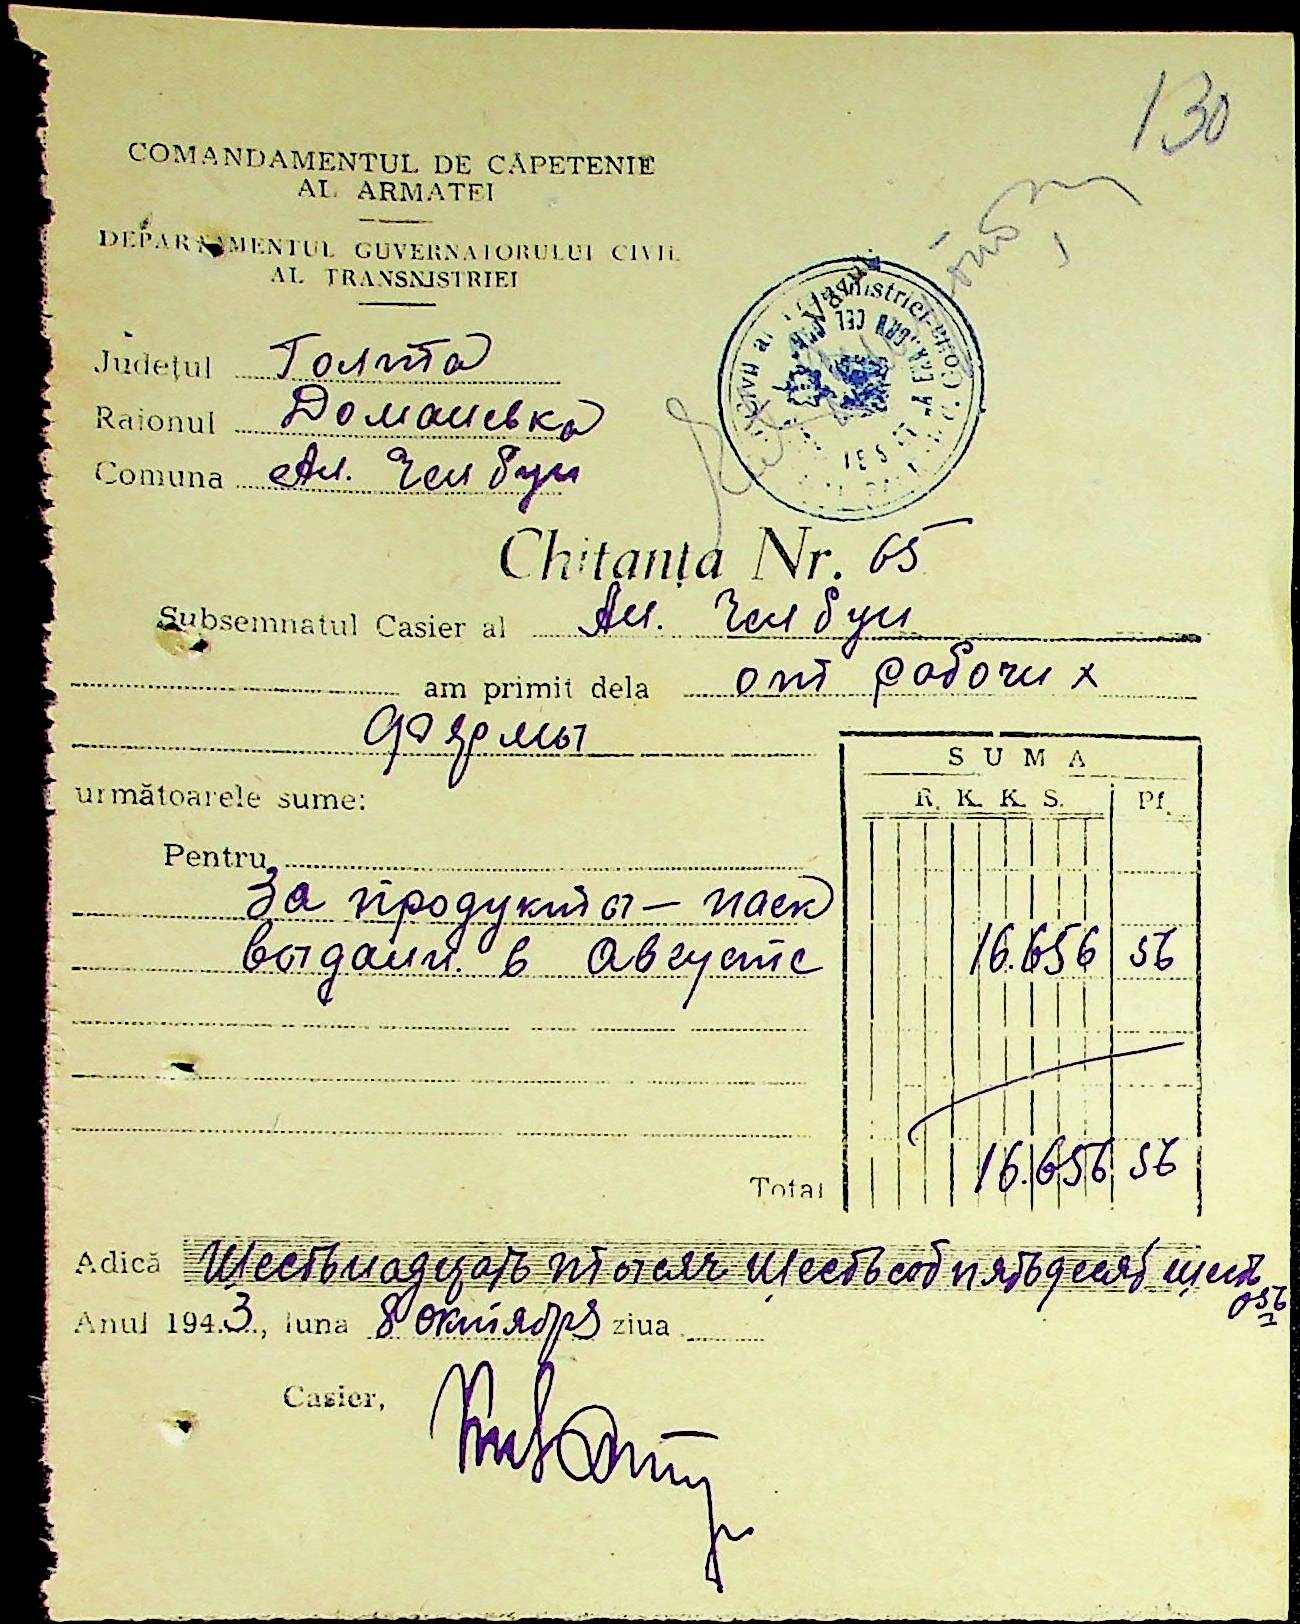 130
COMANDAMENTUL DE CĂPETENIE
AL ARMATEI
DEPARTAMENTUL GUVERNATORULUI CIVIL
AL TRANSNISTRIEI
Județul Голта
Raionul Доманевка
Comuna Ан. Челбун
Chitanța Nr. 65
Subsemnatul Casier al Ан. Челбун
am primit dela от рабочих
фермы
următoarele sume:
SUMA
R. K. K. S. Pf.
Pentru
За продукты — паек
выданн. в Августе 16.656 56
Total 16.656 56
Adică Шестьнадцать тысяч Шестьсот пятьдесят шесть
056
Anul 1943, luna 8 октября ziua
Casier,